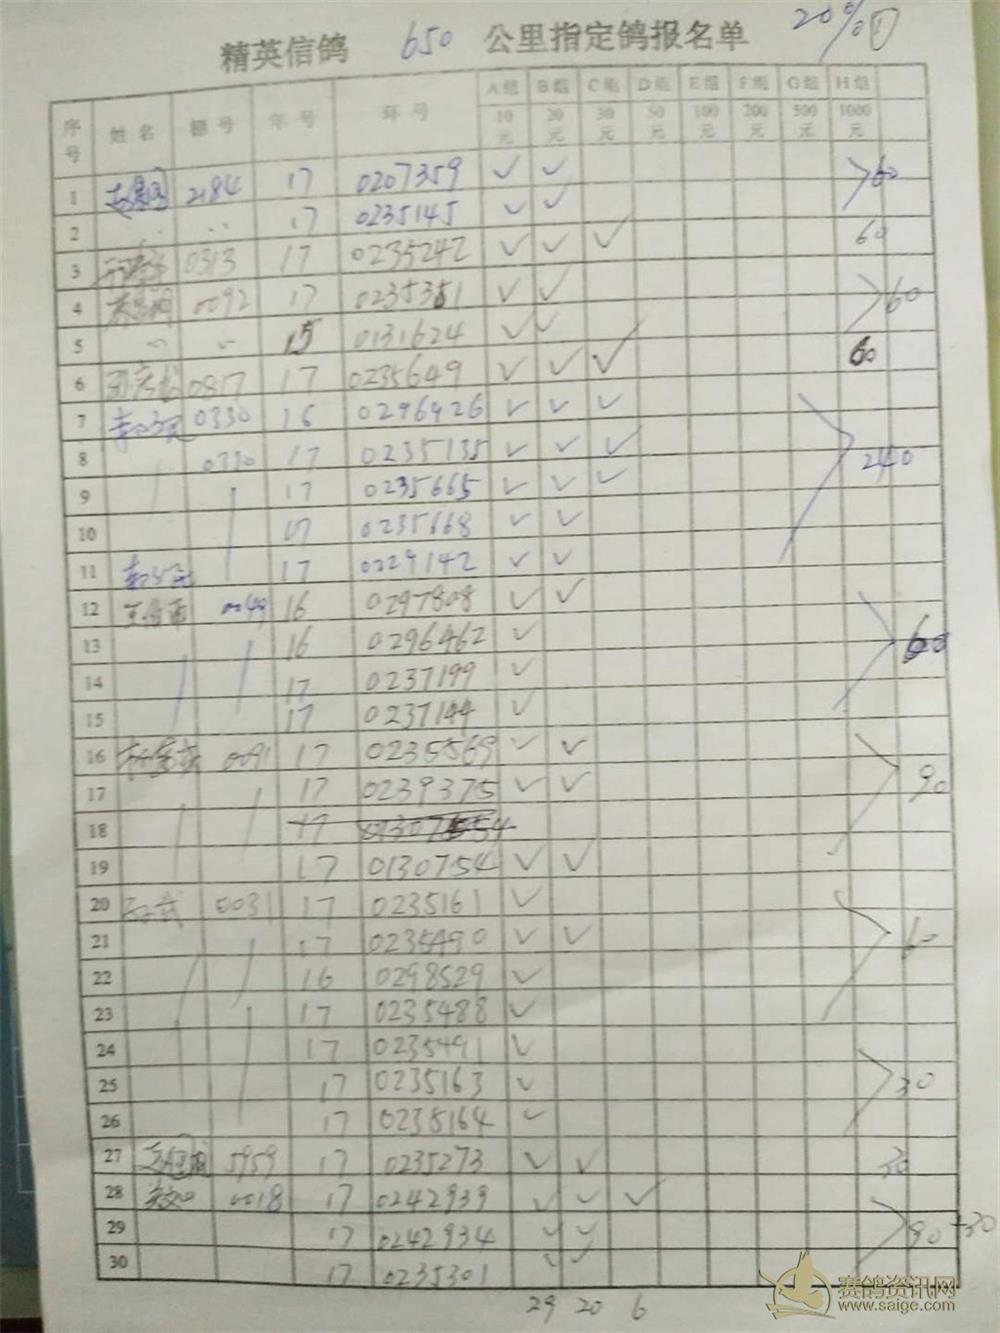 精英信鸽 650 公里指定鸽报名单 20% ①
序号 姓名 棚号 年号 环号 A组 B组 C组 D组 E组 F组 G组 H组
10元 20元 30元 50元 100元 200元 500元 1000元
1 2184 17 0207359 ✓ ✓ 60
2 17 0235145 ✓ ✓
3 0313 17 0235242 ✓ ✓ ✓ 60
4 0092 17 0235381 ✓ ✓ 60
5 15 0131624 ✓ ✓
6 0817 17 0235649 ✓ ✓ ✓ 60
7 0330 16 0296926 ✓ ✓ ✓
8 0330 17 0235135 ✓ ✓ ✓ 240
9 17 0235665 ✓ ✓ ✓
10 17 0235668 ✓ ✓
11 17 0229142 ✓ ✓
12 0049 16 0297808 ✓ ✓
13 16 0296462 ✓ 60
14 17 0237199 ✓
15 17 0237144 ✓
16 0091 17 0235569 ✓ ✓
17 17 0239375 ✓ ✓ 90
18 17
19 17 0130754 ✓ ✓
20 0031 17 0235161 ✓
21 17 0235490 ✓ ✓ 60
22 16 0298529 ✓
23 17 0235488 ✓
24 17 0235491 ✓
25 17 0235163 ✓ 30
26 17 0238164 ✓
27 5959 17 0235273 ✓ ✓ 30
28 0018 17 0242939 ✓ ✓ ✓
29 17 0242934 ✓ ✓ 90+30
30 17 0235301 ✓ ✓
29 20 6
赛鸽资讯网
www.saige.com